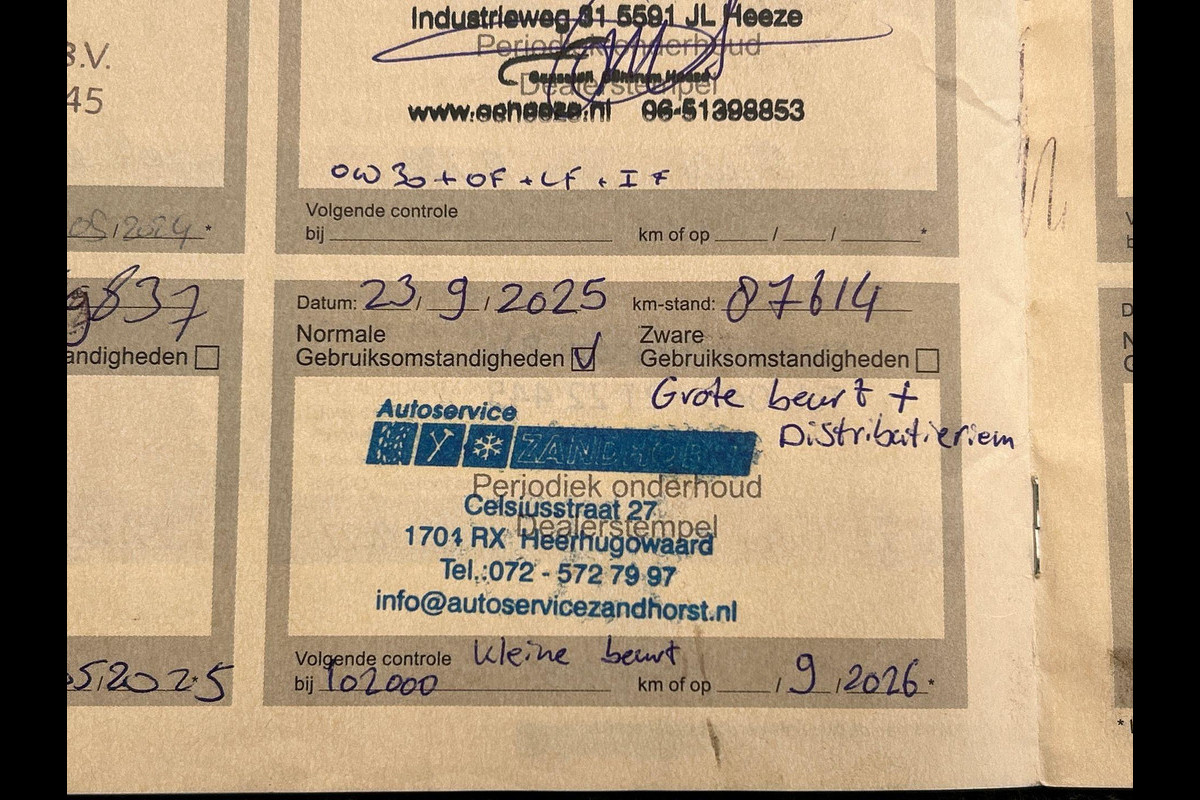 B.V.
45
05/2024 *
9837
andigheden
05/2025 *
Industrieweg 31 5591 JL Heeze
Periodiek onderhoud
Dealerstempel
www.acheeze.nl 06-51398853
0W30 + OF + LF + IF
Volgende controle
bij km of op / / *
Datum: 23 / 9 / 2025 km-stand: 87614
Normale Zware
Gebruiksomstandigheden Gebruiksomstandigheden
Grote beurt +
Distributieriem
Autoservice
ZANDHORST
Periodiek onderhoud
Celsiusstraat 27
Dealerstempel
1704 RX Heerhugowaard
Tel.:072 - 572 79 97
info@autoservicezandhorst.nl
Volgende controle Kleine beurt
bij 102000 km of op / 9 / 2026 *